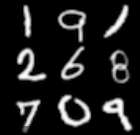 1 9 1
2 6 8
7 0 9